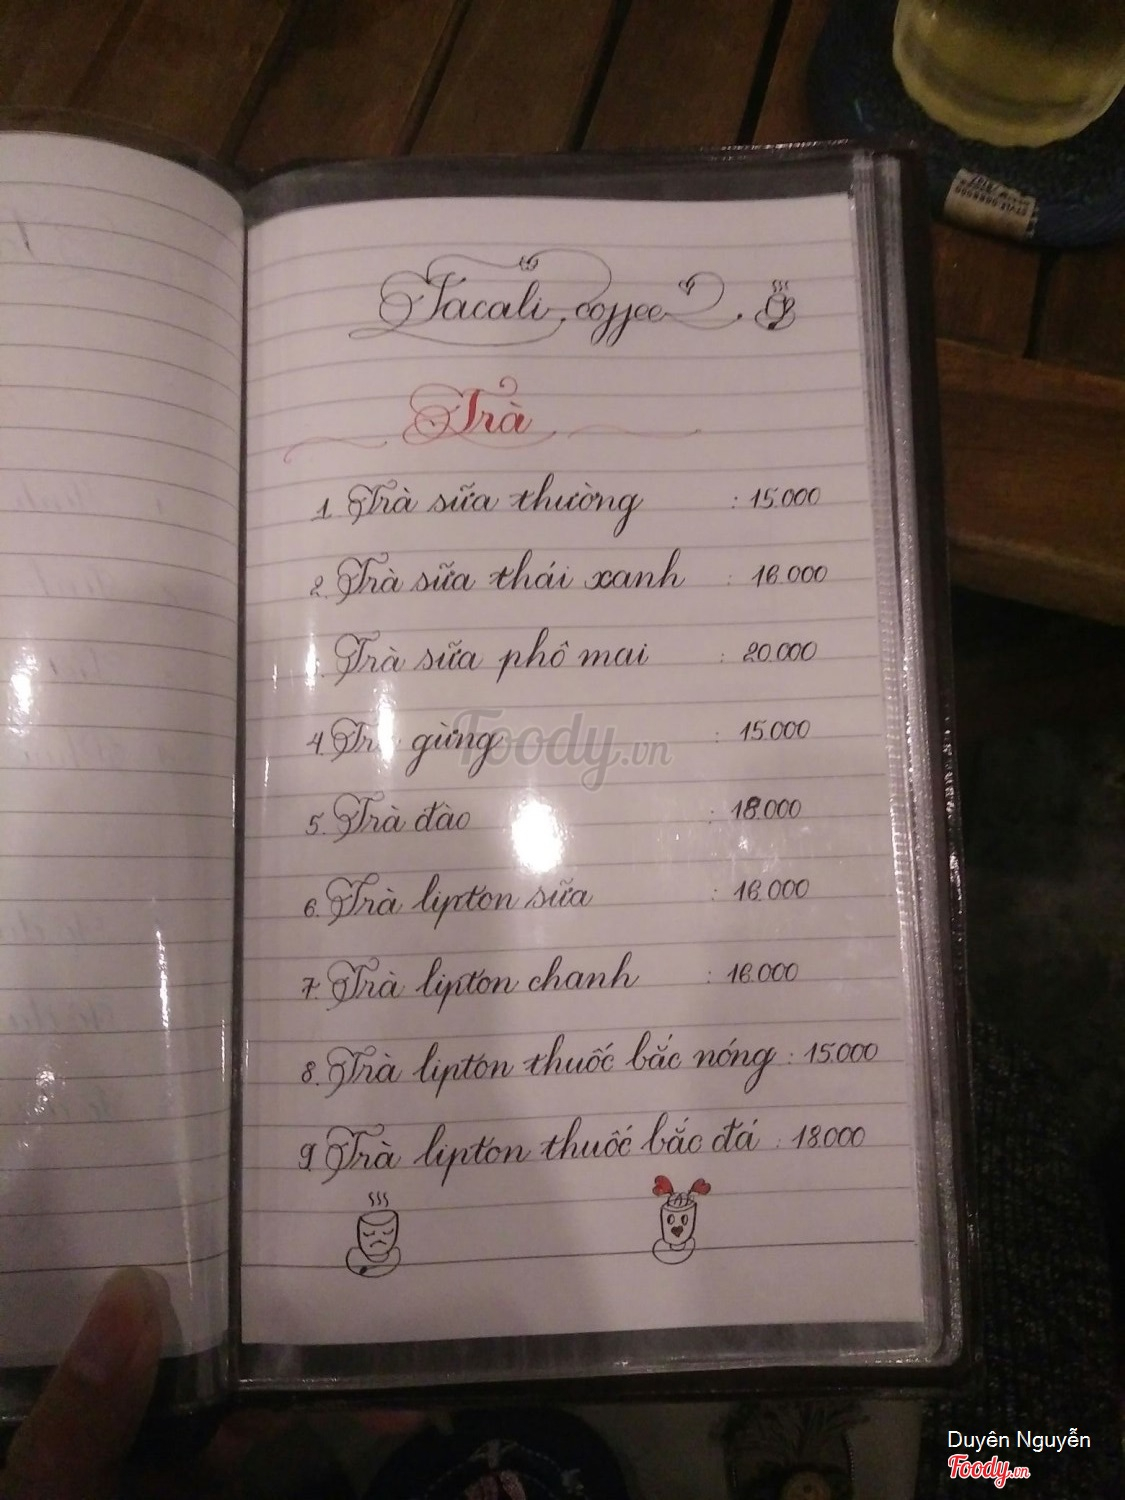 Tacali coffee
Trà
1. Trà sữa thường : 15.000
2. Trà sữa thái xanh : 16.000
Trà sữa phô mai : 20.000
4. Trà gừng : 15.000
5. Trà đào : 18.000
6. Trà lipton sữa : 16.000
7. Trà lipton chanh : 16.000
8. Trà lipton thuốc bắc nóng : 15.000
9. Trà lipton thuốc bắc đá : 18.000
Foody.vn
Duyên Nguyễn
Foody.vn